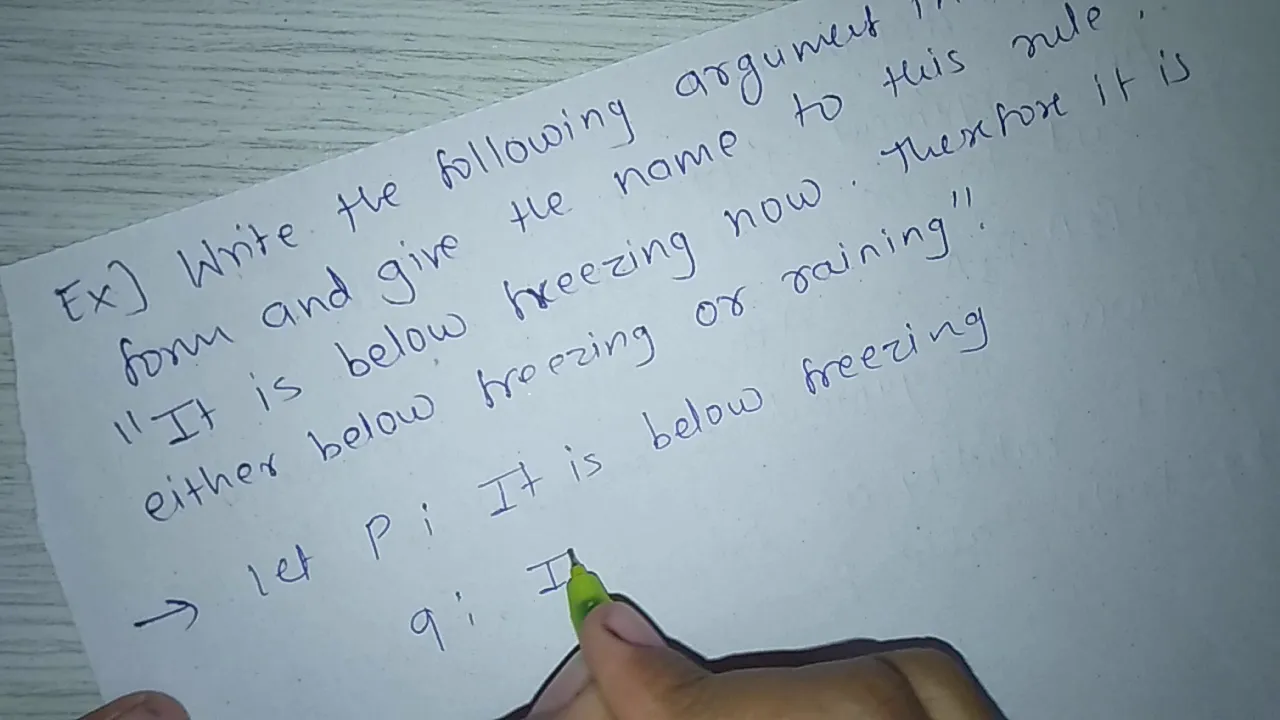 Ex] Write the following argument
form and give the name to this rule.
"It is below freezing now. Therefore it is
either below freezing or raining".
→ let p: It is below freezing
q: